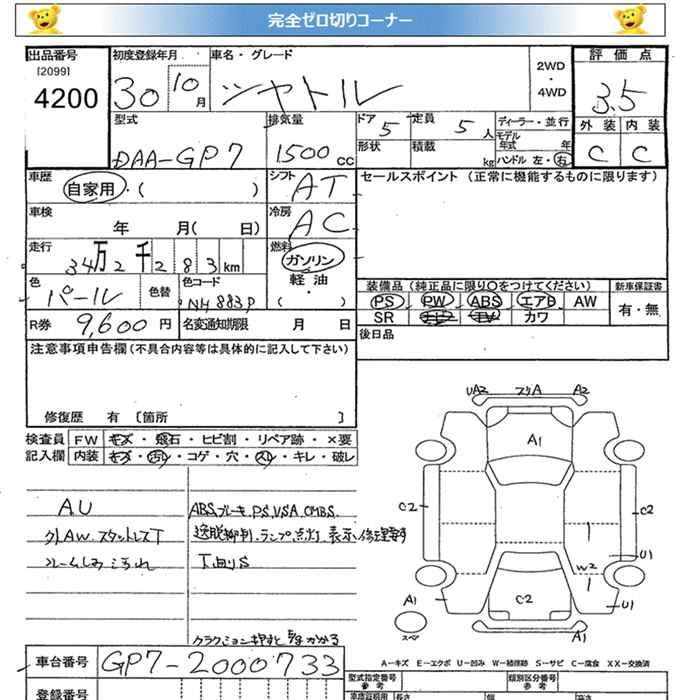 完全ゼロ切りコーナー
出品番号 [2099] 4200
初度登録年月 30 10月
車名・グレード シャトル
2WD・4WD
評価点 3.5
外装 内装
C C
型式 DAA-GP7
排気量 1500 cc
ドア 5 定員 5 人
形状 積載 kg
ディーラー・並行
モデル年式 年
ハンドル 左・右
車歴 自家用・( )
シフト AT
セールスポイント (正常に機能するものに限ります)
車検 年 月( 日)
冷房 AC
走行 34万2千283km
燃料 ガソリン・軽油・( )
色 パール 色替 色コード NH883P
装備品 (純正品に限り○をつけてください) 新車保証書
PS PW ABS エアB AW 有・無
SR ナビ TV カワ
R券 9,600円 名変通知期限 月 日
後日品
注意事項申告欄(不具合内容等は具体的に記入して下さい)
修復歴 有 [箇所 ]
検査員記入欄
FW キズ・飛石・ヒビ割・リペア跡・×要
内装 キズ・汚れ・コゲ・穴・スレ・キレ・破レ
AU
外AW.スタットレスT
ルームしみこられ
ABS.ブレーキ.P.S.VSA.CMBS.
逸脱抑制.ランプ点灯.表示.修理要す
T.白りS
クラクション押すと
かかる
UA2 スリA A2
A1
C2 C2
U1
W2
A1 C2 U1
スペア A1
A-キズ E-エクボ U-凹み W-補修跡 S-サビ C-腐食 XX-交換済
車台番号 GP7-2000733
型式指定番号 参考 類別区分番号 参考
登録番号
車庫証明用 長さ 幅 高さ